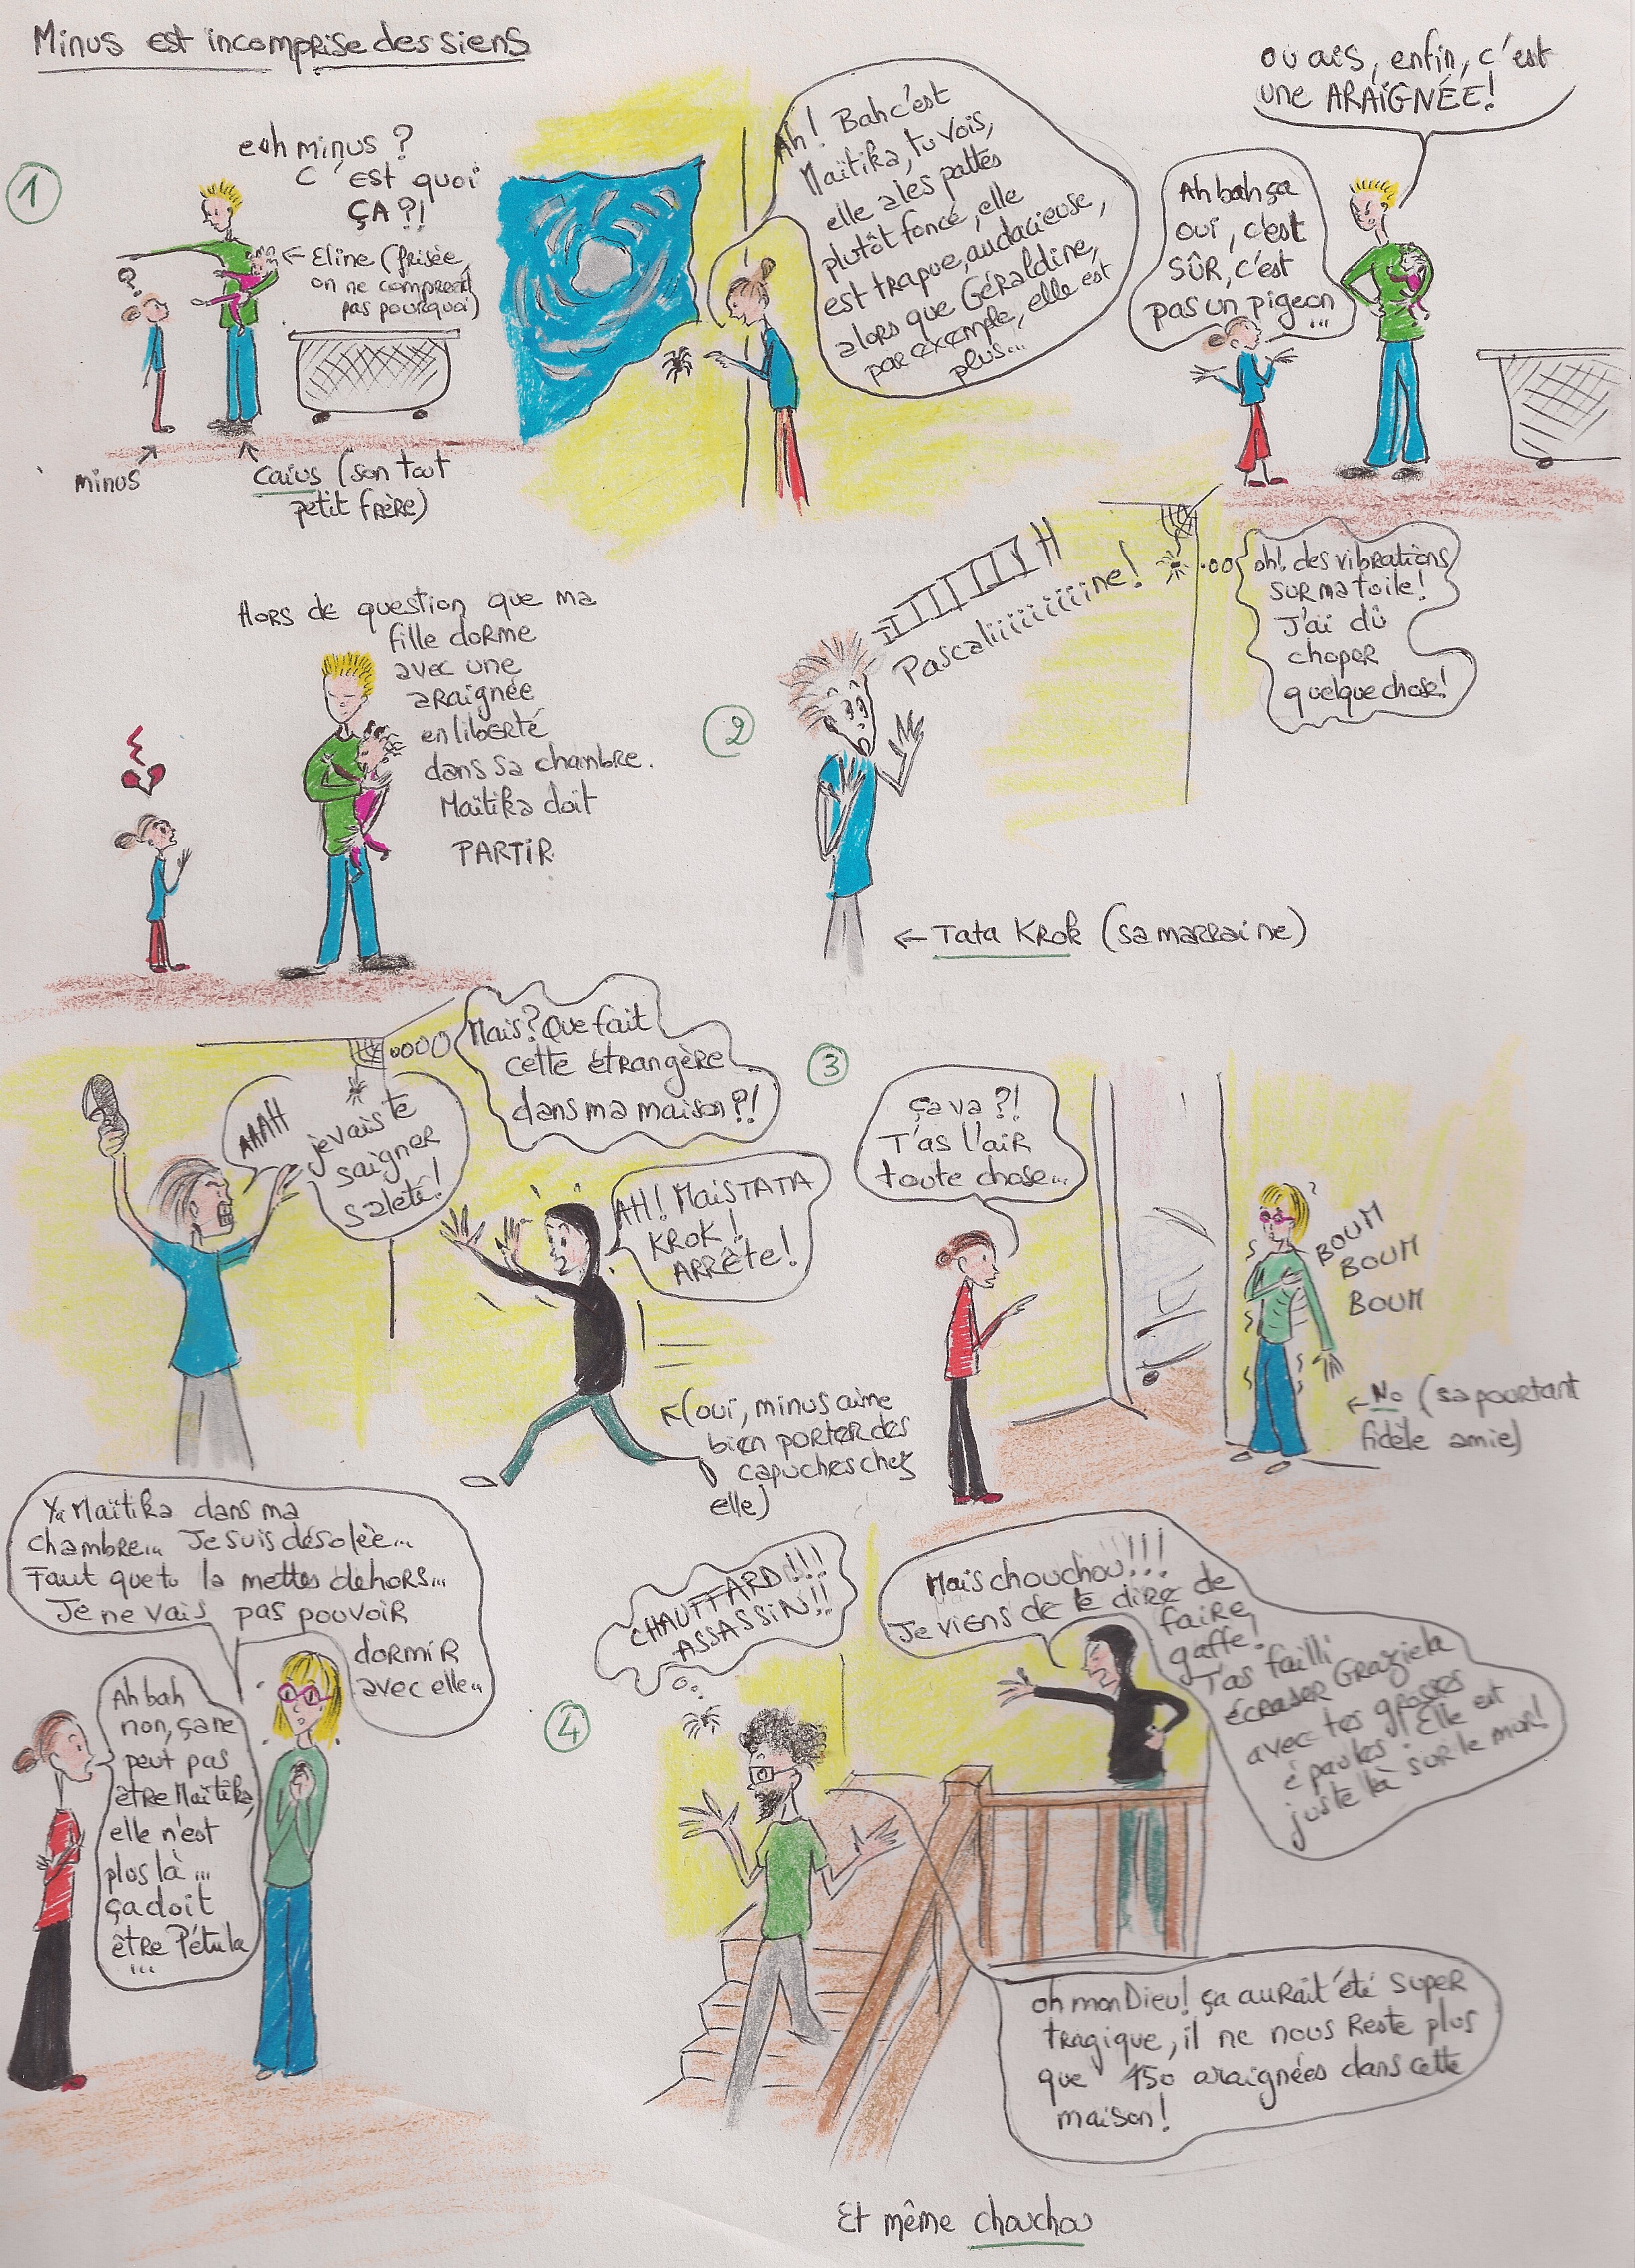 Minus est incomprise des siens
1
euh minus ?
C'est quoi
ÇA ?!
?
← Eline (frisée,
on ne comprend
pas pourquoi)
minus
Caius (son tout
petit frère)
Ah! Bah c'est
Maïtika, tu vois,
elle a les pattes
plutôt foncé, elle
est trapue, audacieuse,
alors que Géraldine,
par exemple, elle est
plus...
ouais, enfin, c'est
une ARAIGNÉE!
Ah bah ça
oui, c'est
SÛR, c'est
pas un pigeon
...
Hors de question que ma
fille dorme
avec une
araignée
en liberté
dans sa chambre.
Maïtika doit
PARTIR
2
HIIIIIIH
Pascaliiiiiiiiiine!
oh! des vibrations
sur ma toile!
J'ai dû
choper
quelque chose!
← Tata Krok (sa marraine)
Mais? Que fait
cette étrangère
dans ma maison?!
AAAH
je vais te
saigner
saleté!
AH! Mais TATA
KROK!
ARRÊTE!
←(oui, minus aime
bien porter des
capuches chez
elle)
3
ça va ?!
T'as l'air
toute chose...
BOUM
BOUM
BOUM
← No (sa pourtant
fidèle amie)
Ya Maïtika dans ma
chambre... Je suis désolée...
Faut que tu la mettes dehors...
Je ne vais pas pouvoir
dormir
avec elle...
Ah bah
non, ça ne
peut pas
être Maïtika,
elle n'est
plus là...
ça doit
être Pétula
...
4
CHAUFFARD!!!!
ASSASSIN!!
Mais chouchou!!!
Je viens de te dire de
faire
gaffe!
T'as failli
écraser Graziela
avec tes grosses
épaules! Elle est
juste là sur le mur!
oh mon Dieu! ça aurait été super
tragique, il ne nous reste plus
que 150 araignées dans cette
maison!
Et même chouchou